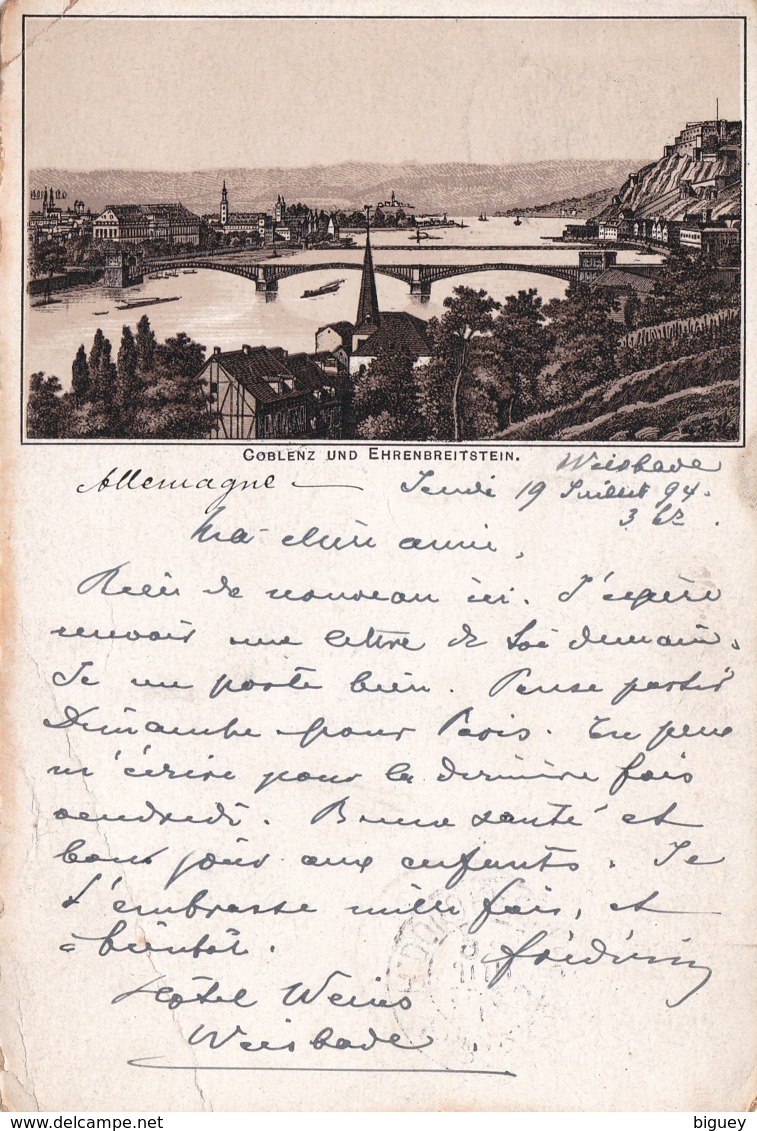 COBLENZ UND EHRENBREITSTEIN.
Wiesbade
Allemagne — Jeudi 19 Juillet 94.
3 hr.
Ma chère amie,
Rien de nouveau ici. J'espère
recevoir une lettre de toi demain.
Je me porte bien. Pense partir
Dimanche pour Paris. Tu peux
m'écrire pour la dernière fois
vendredi. Bonne santé et
bonjour aux enfants. Je
t'embrasse mille fois, et
à bientôt.
Hôtel Weins
Wiesbade
delcampe.net
biguey